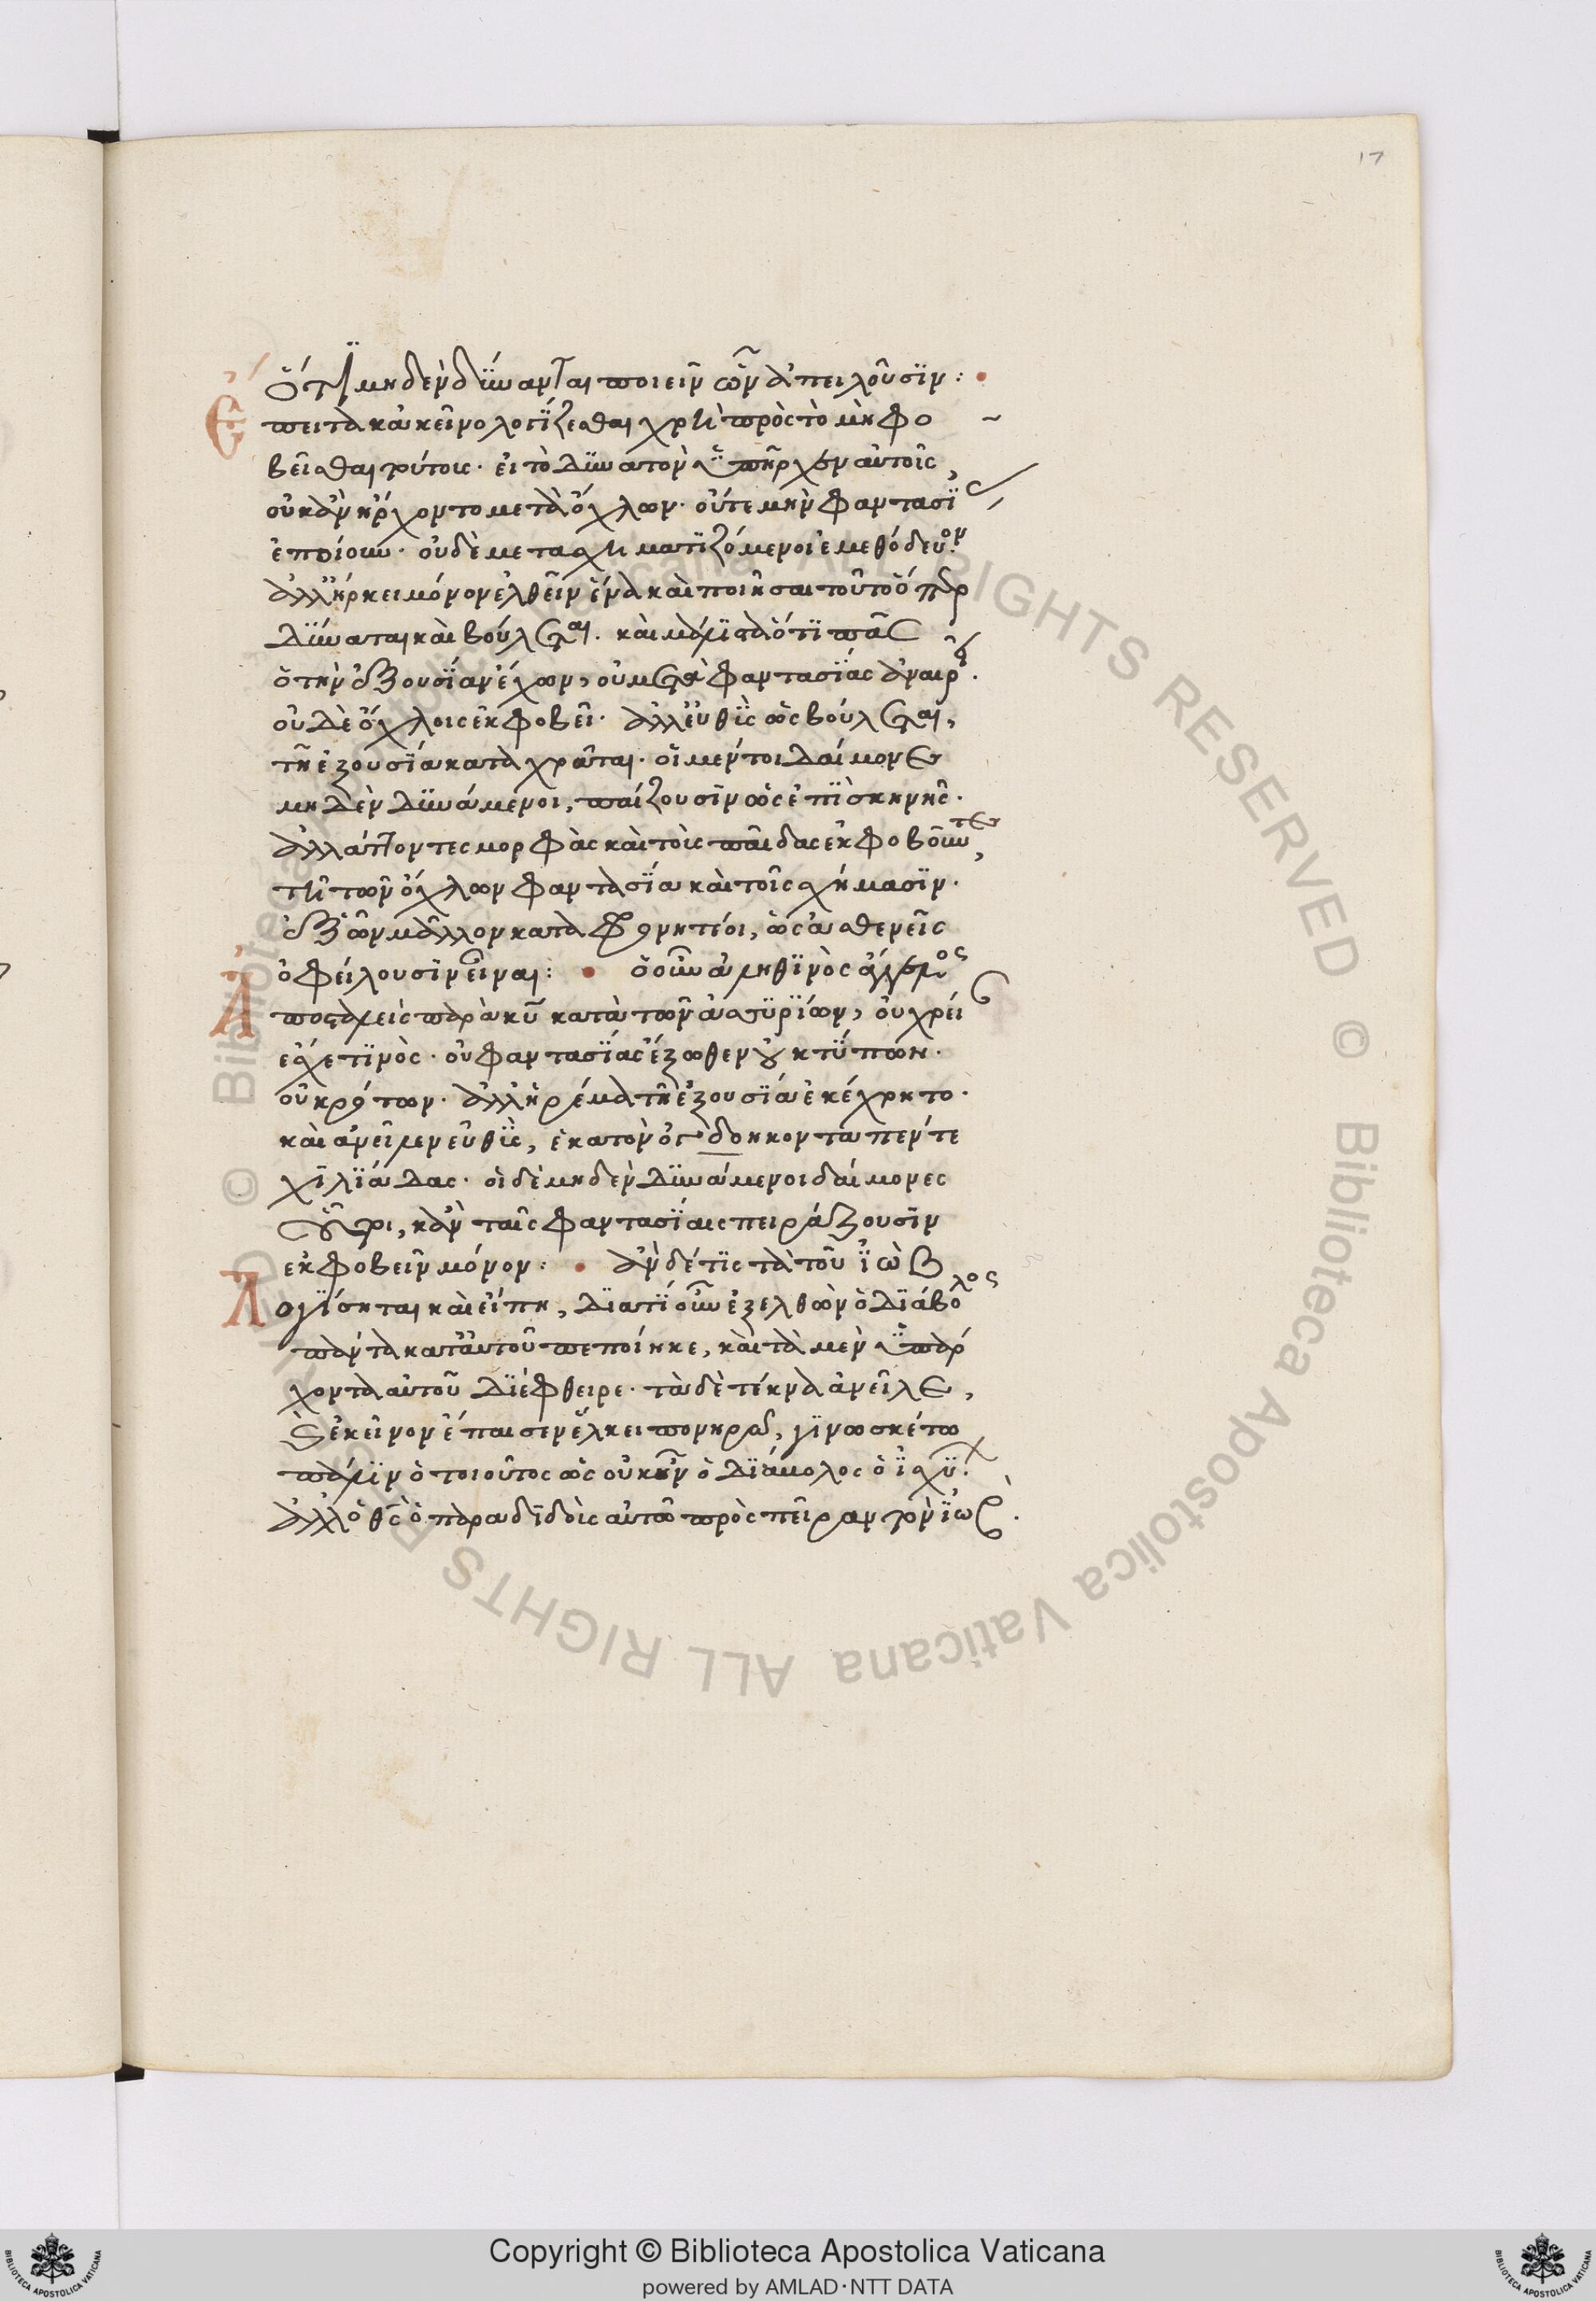 17
ὅτι μηδὲν δύνανται ποιεῖν ὧν ἀπειλοῦσιν :
Ἔπειτα κἀκεῖνο λογίζεσθαι χρὴ πρὸς τὸ μὴ φο
βεῖσθαι τούτους. εἰ τὸ δυνατὸν ὑπῆρχεν αὐτοῖς,
οὐκ ἂν ἤρχοντο μετὰ ὄχλων. οὔτε μὴν φαντασίας
ἐποίουν. οὐδὲ μετασχηματιζόμενοι ἐμεθόδευον.
ἀλλ' ἤρκει μόνον ἐλθεῖν ἕνα καὶ ποιῆσαι τοῦτο ὅπερ
δύναται καὶ βούλεται. καὶ μάλιστα ὅτι πᾶς
ὁ τὴν ἐξουσίαν ἔχων, οὐ μετὰ φαντασίας ἀναιρεῖ.
οὐδὲ ὄχλοις ἐκφοβεῖ. ἀλλ' εὐθὺς ὡς βούλεται,
τῇ ἐξουσία καταχρᾶται. οἱ μέντοι δαίμονες
μηδὲν δυνάμενοι, παίζουσιν ὡς ἐπὶ σκηνῆς.
ἀλλάττοντες μορφὰς καὶ τοὺς παῖδας ἐκφοβοῦντες,
τῇ τῶν ὄχλων φαντασία καὶ τοῖς σχήμασιν.
ἐξ ὧν μᾶλλον καταφρονητέοι, ὡς ἀσθενεῖς
ὀφείλουσιν εἶναι : ὁ οὖν ἀληθινὸς ἄγγελος
Ἀποσταλεὶς παρὰ κυ κατὰ τῶν ἀσσυρίων, οὐ χρεί
ἔσχε τινὸς. οὐ φαντασίας ἔξωθεν οὐ κτύπων.
οὐ κρότων. ἀλλ' ἠρέμα τῇ ἐξουσία ἐκέχρητο.
καὶ ἀνεῖλεν εὐθὺς, ἑκατὸν ὀγδοήκοντα πέντε
χιλιάδας. οἱ δὲ μηδὲν δυνάμενοι δαίμονες
οὗτοι, κἂν ταῖς φαντασίαις πειράζουσιν
ἐκφοβεῖν μόνον : ἂν δέ τις τὰ τοῦ ἰὼβ
Λογίσηται καὶ εἴπη, διατί οὖν ἐξελθὼν ὁ διάβολος
πάντα κατ' αὐτοῦ πεποίηκε, καὶ τὰ μὲν ὑπάρ
χοντα αὐτοῦ διέφθειρε. τὰ δὲ τέκνα ἀνεῖλε,
κἀκεῖνον ἔπαισεν ἕλκει πονηρῶ, γινωσκέτω
πάλιν ὁ τοιοῦτος ὡς οὐκ ἦν ὁ διάβολος ὁ ἰσχύων.
ἀλλ' ὁ θς ὁ παραδιδοὺς αὐτῶ πρὸς πεῖραν τὸν ἰώβ.
Copyright © Biblioteca Apostolica Vaticana
powered by AMLAD·NTT DATA